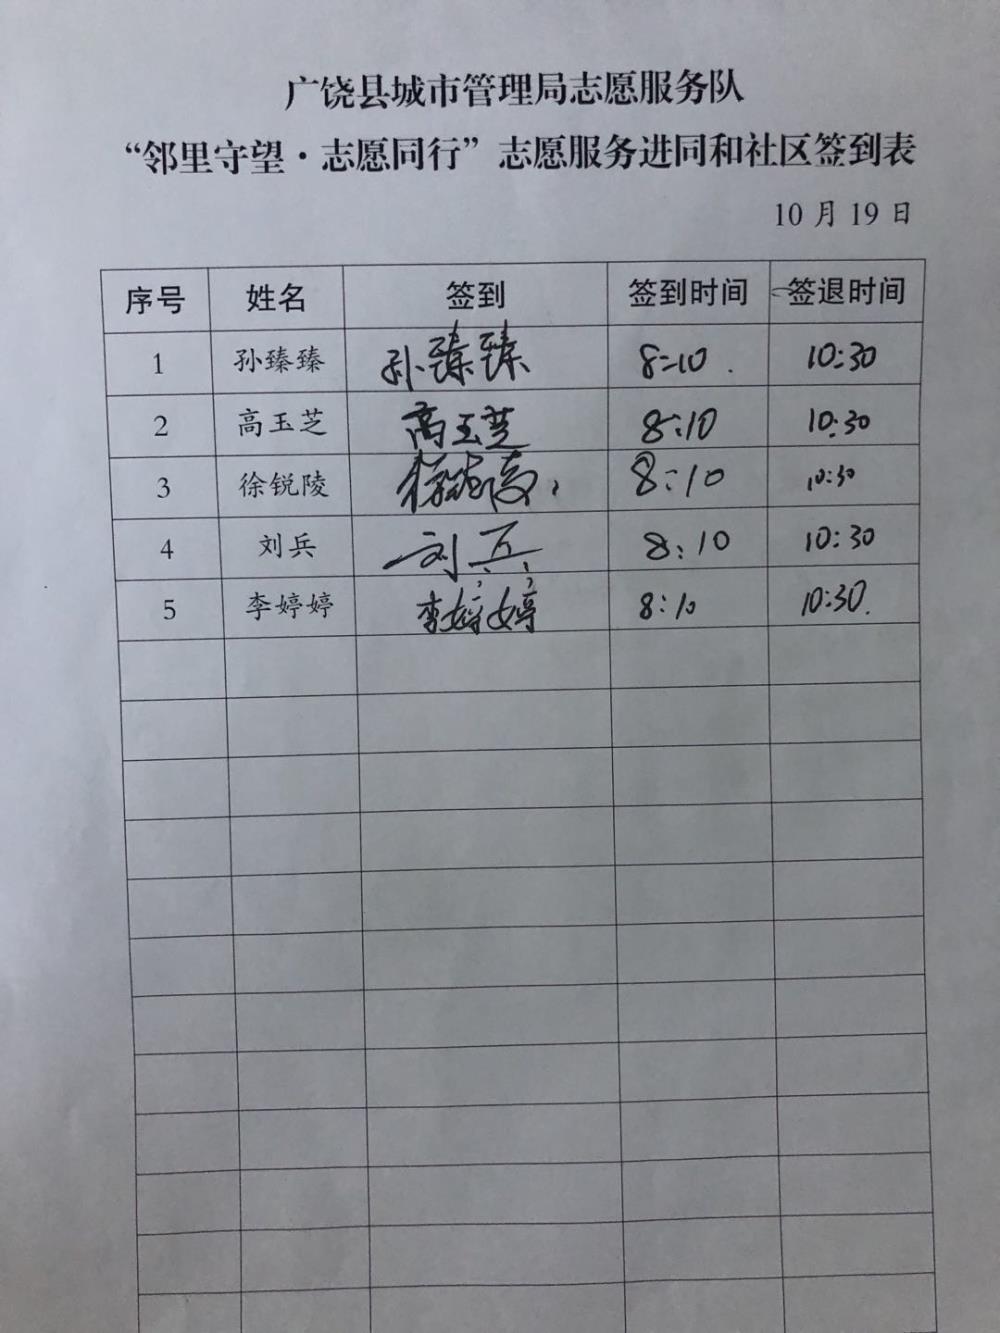 广饶县城市管理局志愿服务队
“邻里守望·志愿同行”志愿服务进同和社区签到表
10月19日
序号 姓名 签到 签到时间 签退时间
1 孙臻臻 孙臻臻 8:10 10:30
2 高玉芝 高玉芝 8:10 10:30
3 徐锐陵 徐锐陵 8:10 10:30
4 刘兵 刘兵 8:10 10:30
5 李婷婷 李婷婷 8:10 10:30